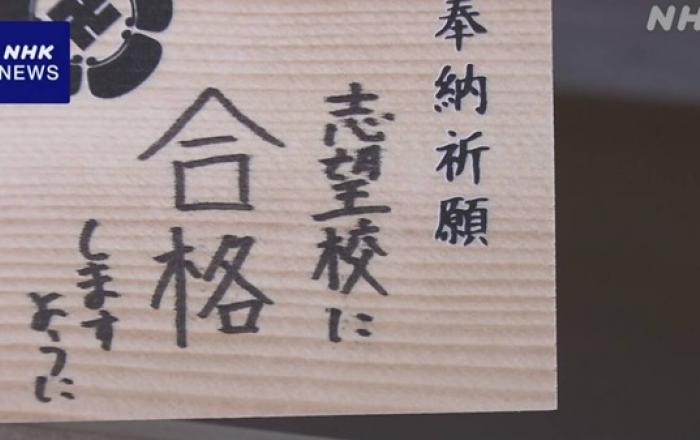 NHK
NEWS
NH
奉納祈願
志望校に
合格
します
ように